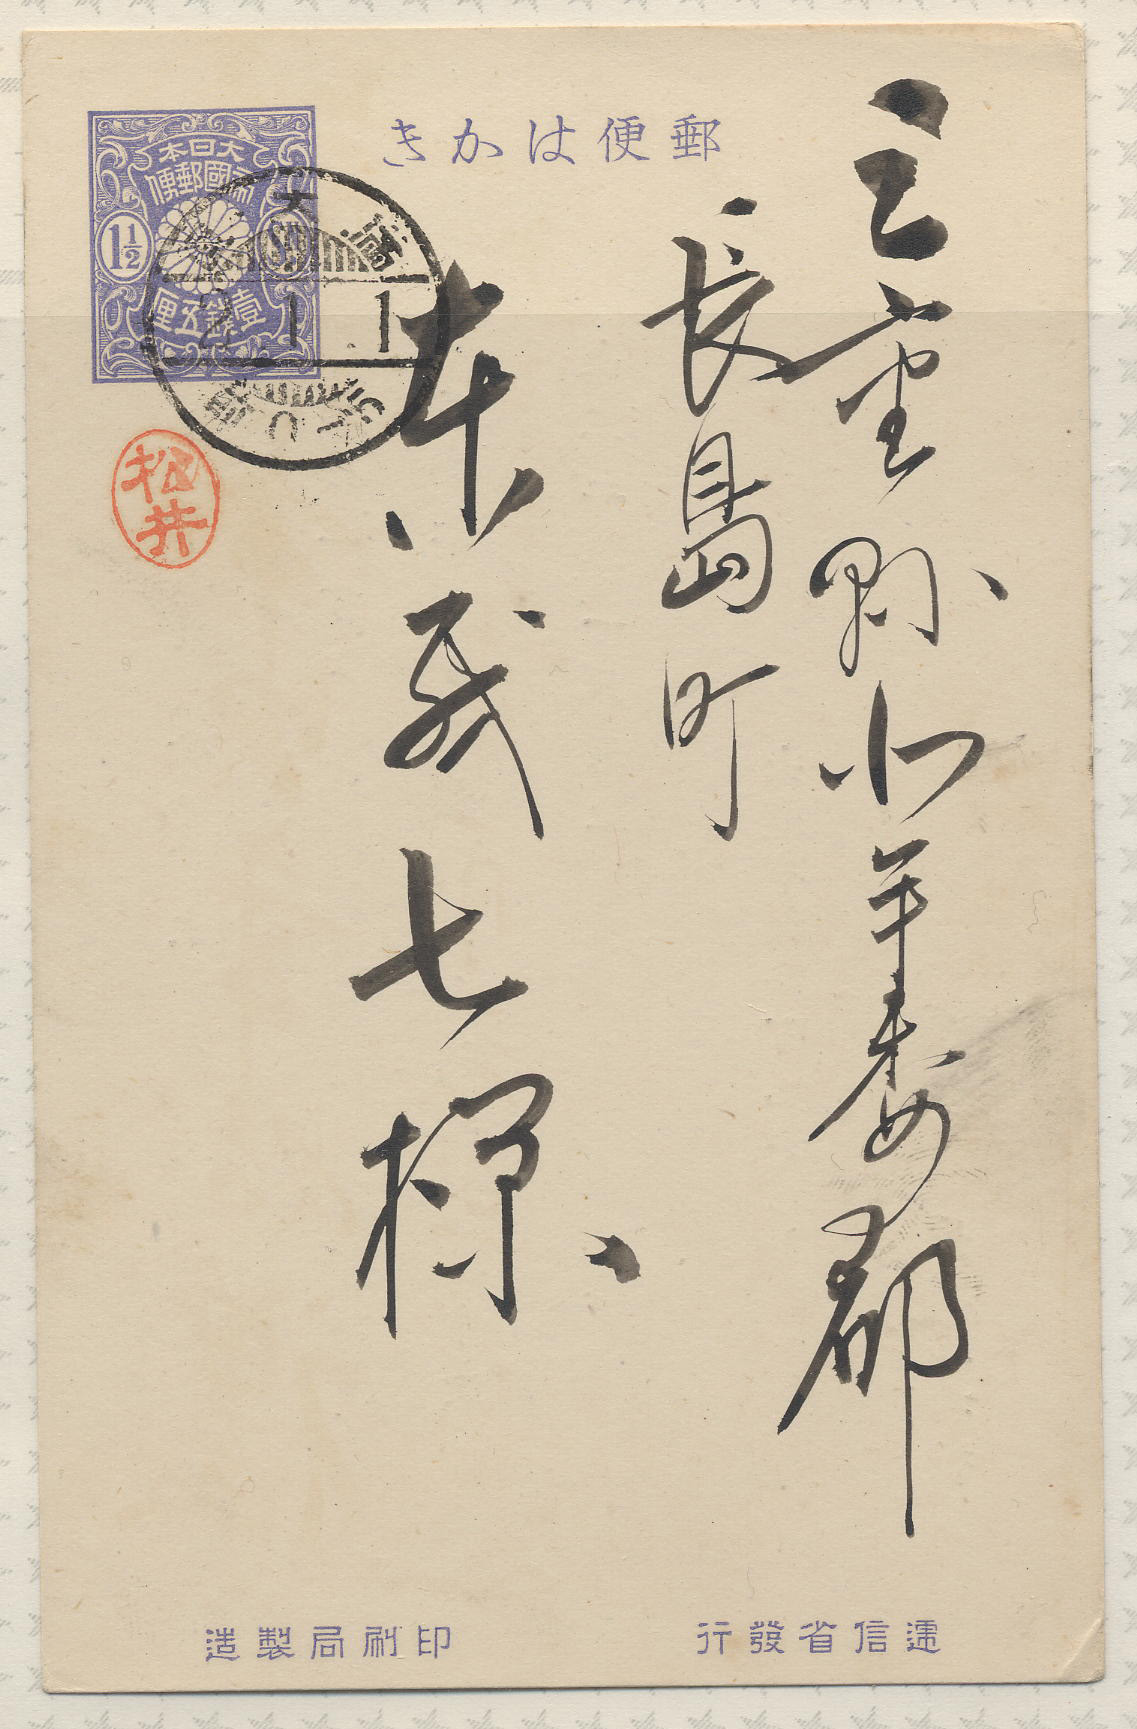 郵便はかき
大日本
帝國郵便
1½
SN
壹錢五厘
2 1 1
松井
三重縣北牟婁郡
長島町
七様
逓信省發行
印刷局製造